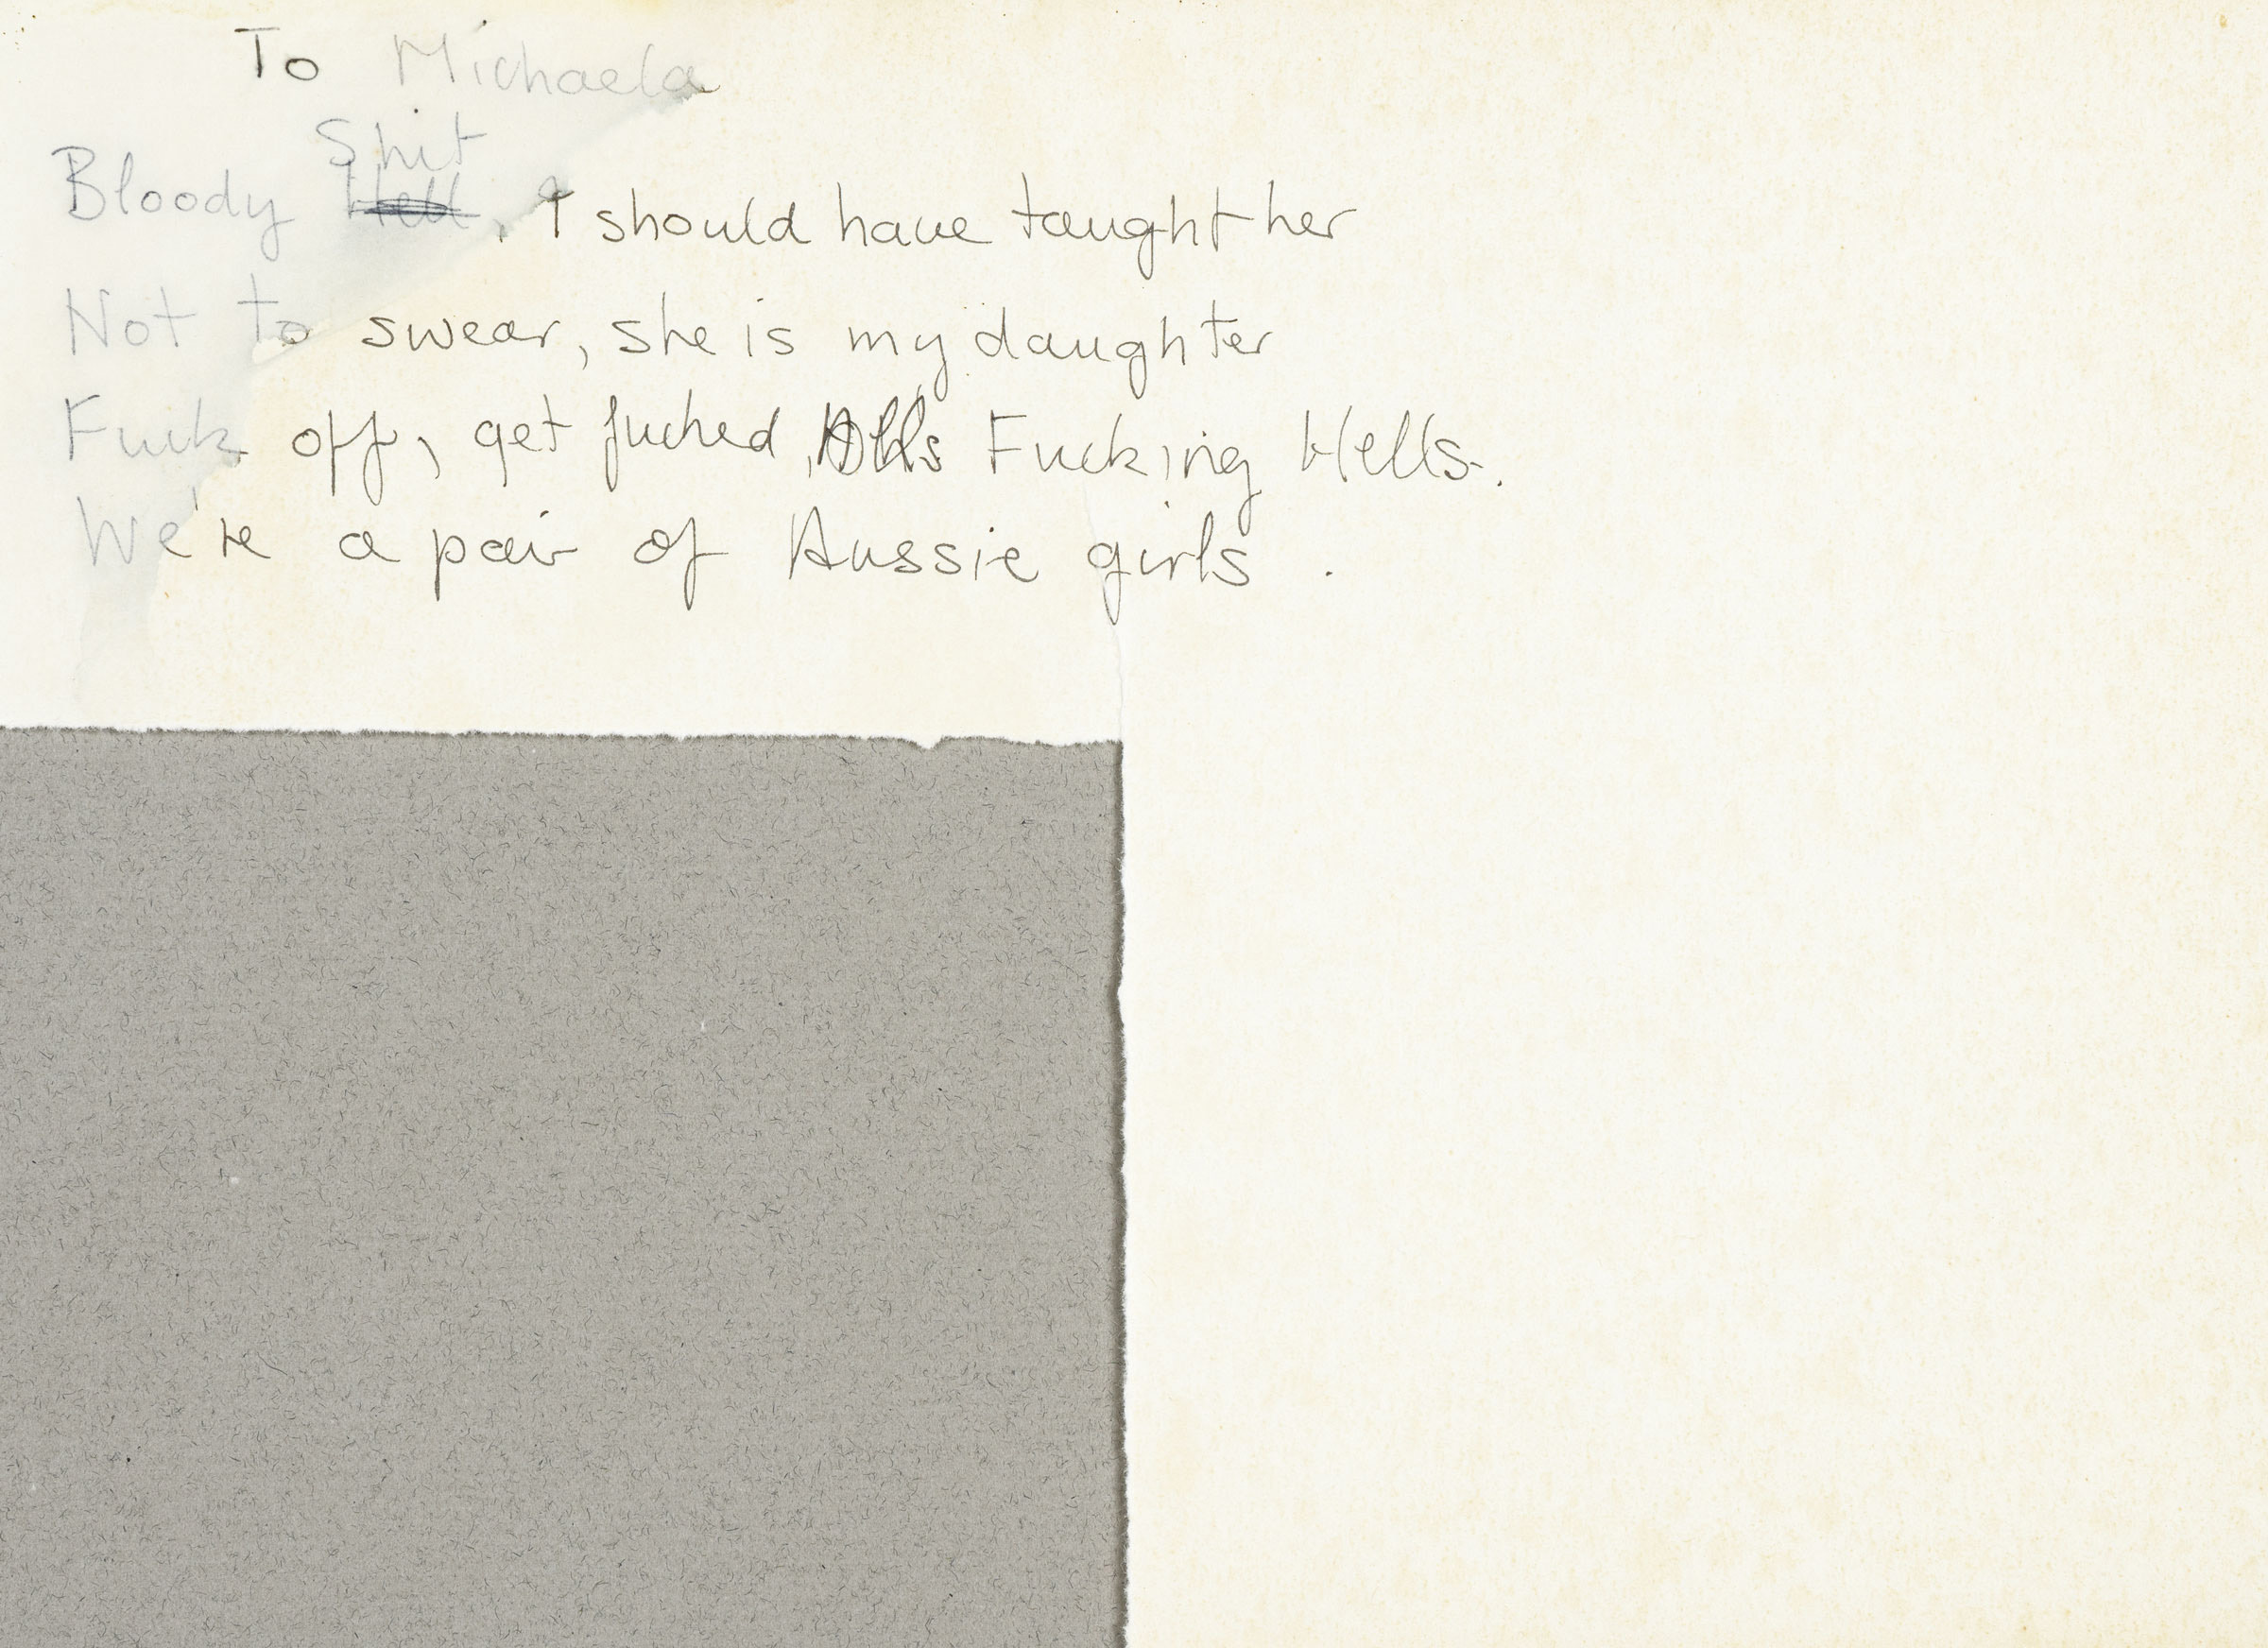 To Michaela
Shit
Bloody Hell, I should have taught her
Not to swear, she is my daughter
Fuck off, get fucked, Fucking Hells.
We're a pair of Aussie girls.